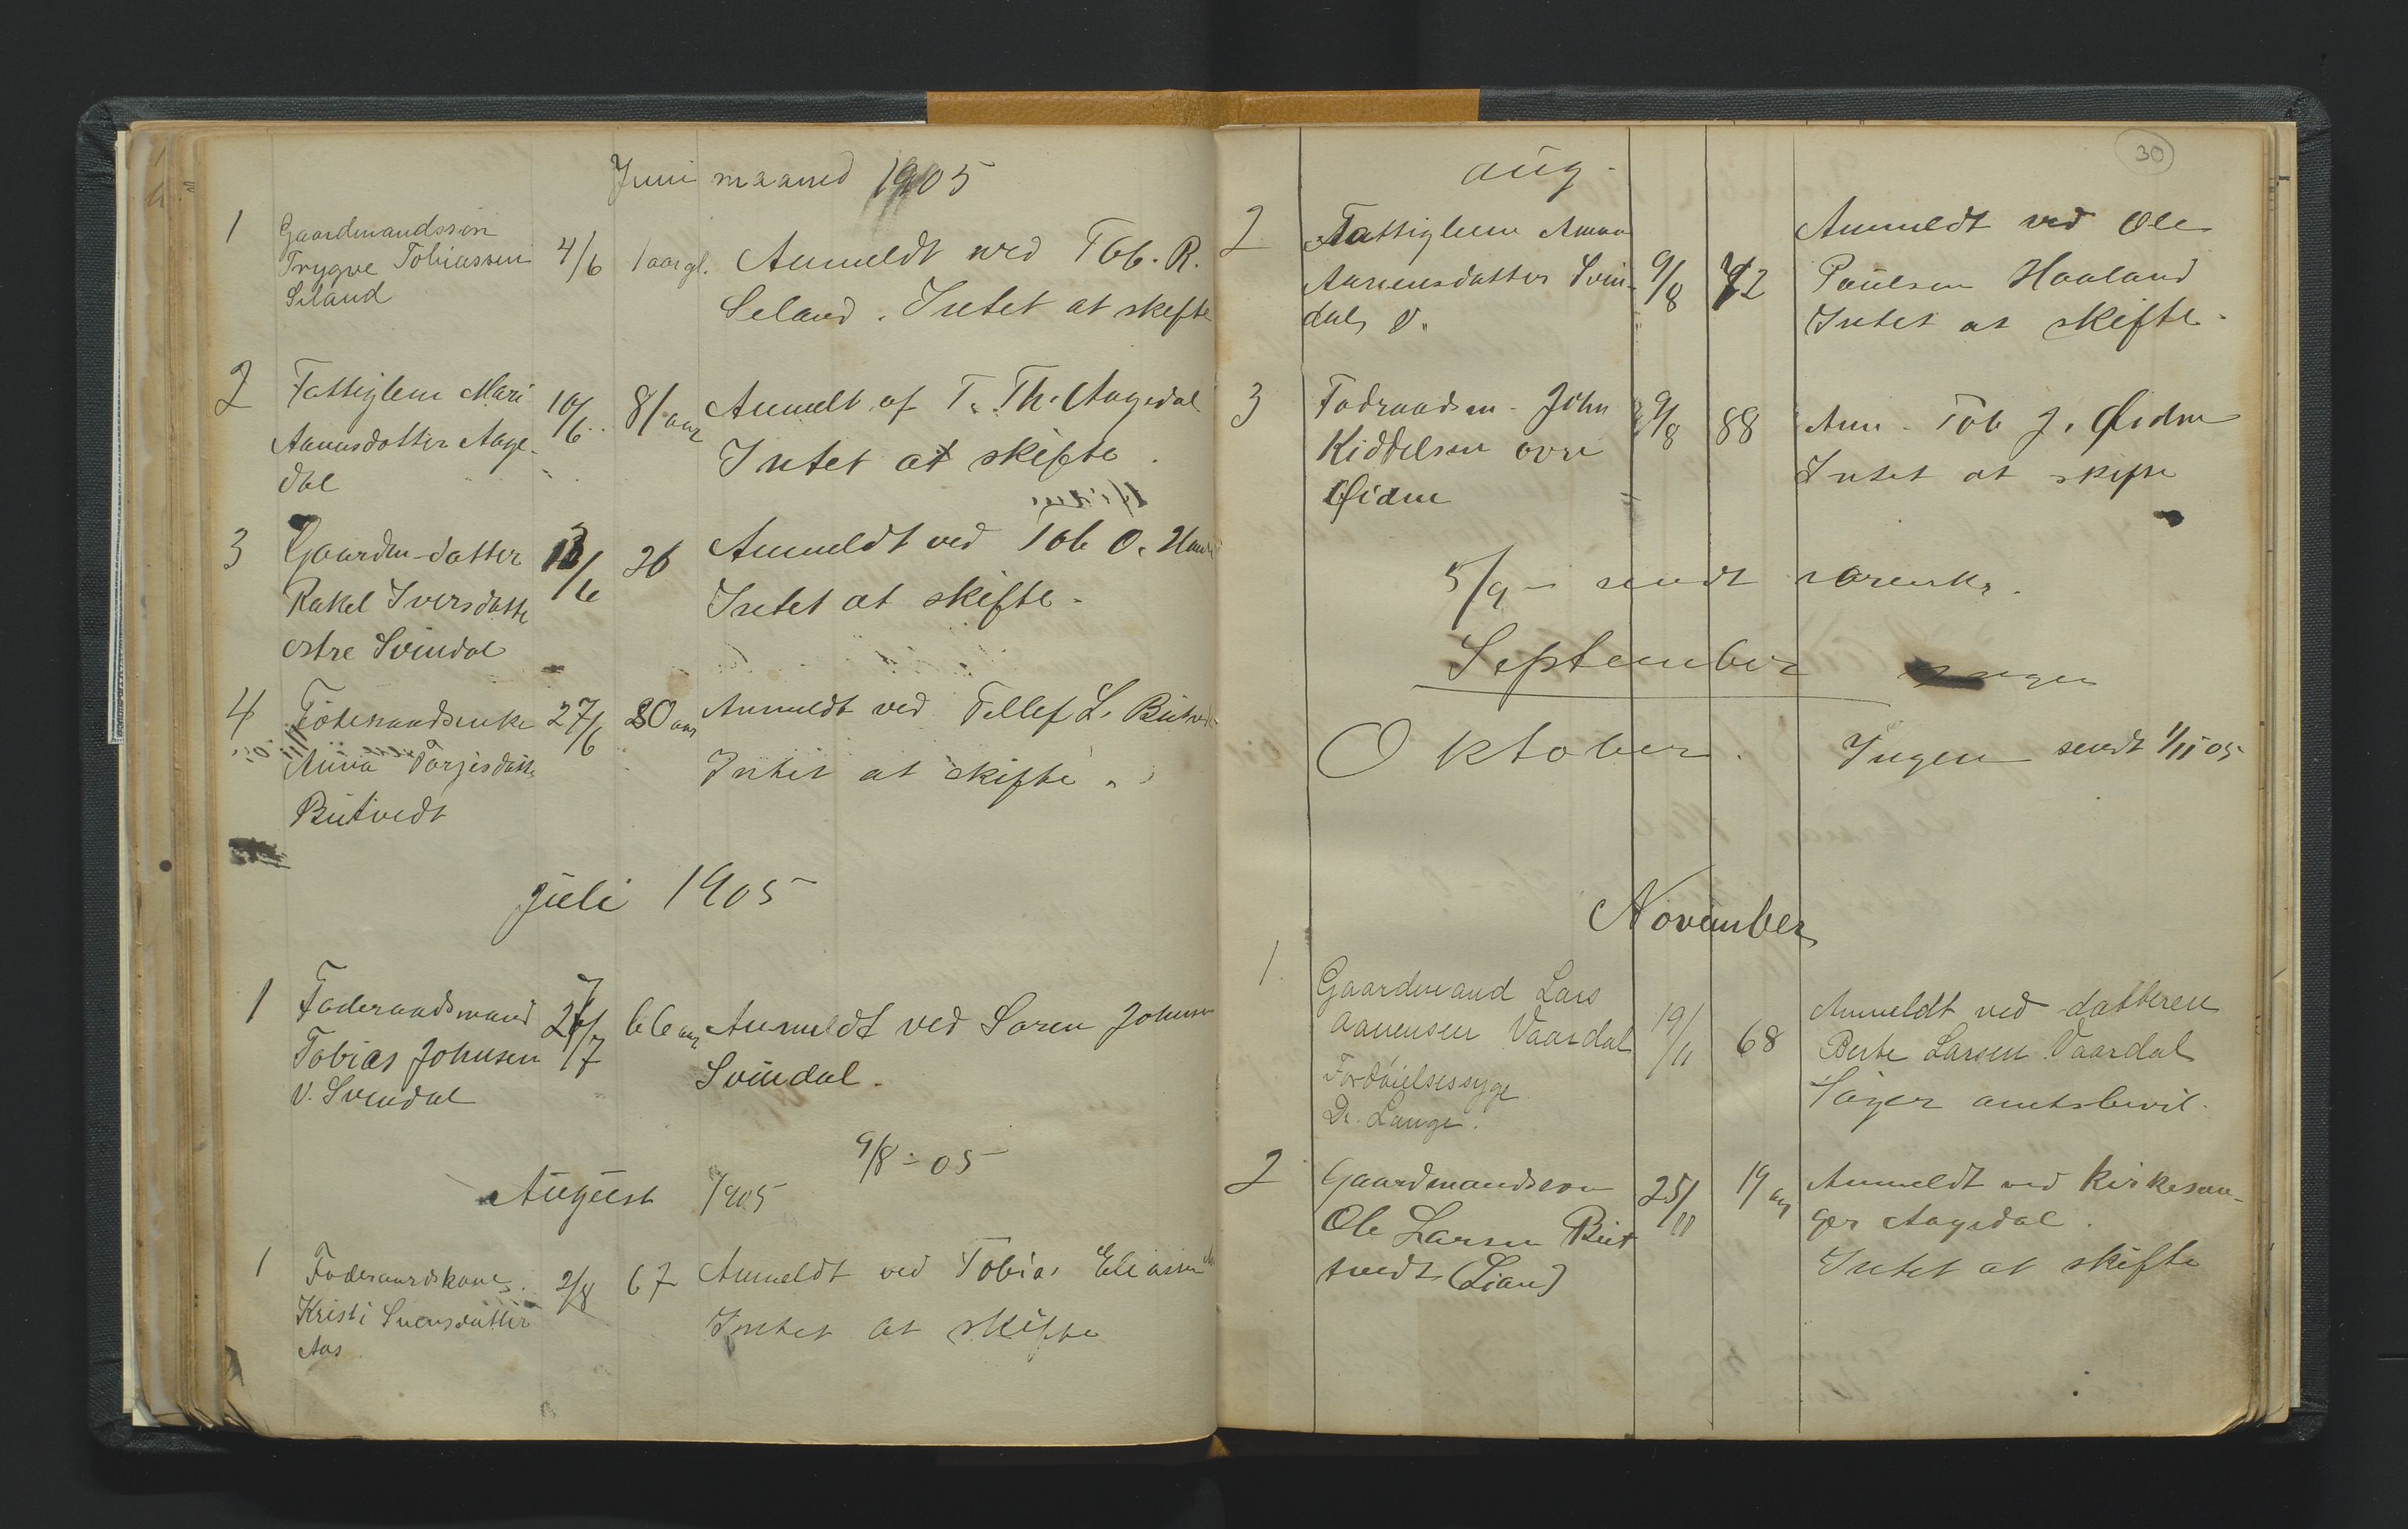 Juni maaned 1905
1 Gaardmandssøn
Trygve Tobiassen 4/6 1 aar gl. Anmeldt ved Tob. R.
Seland Seland. Intet at skifte
2 Fattiglem Mari 10/6 81 aar Anmelt af T. Th. Aagedal
Aanensdatter Aage-
dal Intet at skifte.
3 Gaardm-datter 13/6 26 Anmeldt ved Tob O.
Rakel Iversdatte Intet at skifte.
østre Svindal
4 Föderaadsenke 27/6 80 aar Anmeldt ved Tellef L. Butvedt
Anna Torjesdatte Intet at skifte.
Butvedt
Juli 1905
1 Føderaadsmand 27/7 66 aar Anmeldt ved Søren Johnsen
Tobias Johnsen Svindal.
V. Svindal
9/8-05
August 1905
1 Føderaadskone 2/8 67 Anmeldt ved Tobias Eliassen
Kristi Svensdatter Intet at skifte
Aas
30
aug.
2 Fattiglem Anna Anmeldt ved Ole
Aanensdatter Svin- 9/8 72 Paulsen Haaland
dal, V. Intet at skifte.
3 Fodraadsm. John 9/8 88 Anm. Tob J. Øidne
Kiddelsen øvre Intet at skifte
Øidne
5/9 - sendt sorensk.
September Ingen
Oktober. Ingen sendt 1/11 05
November
1. Gaardmand Lars Anmeldt ved datteren
Aanensen Vaardal 19/11 68 Berte Larsen Vaardal
Fordøielsessyge Søger amtsbevil.
Dr. Lange.
2 Gaardmandsson 25/11 19 aar Anmeldt ved Kirkesan-
Ole Larsen But ger Aagedal.
tvedt (Lian) Intet at skifte